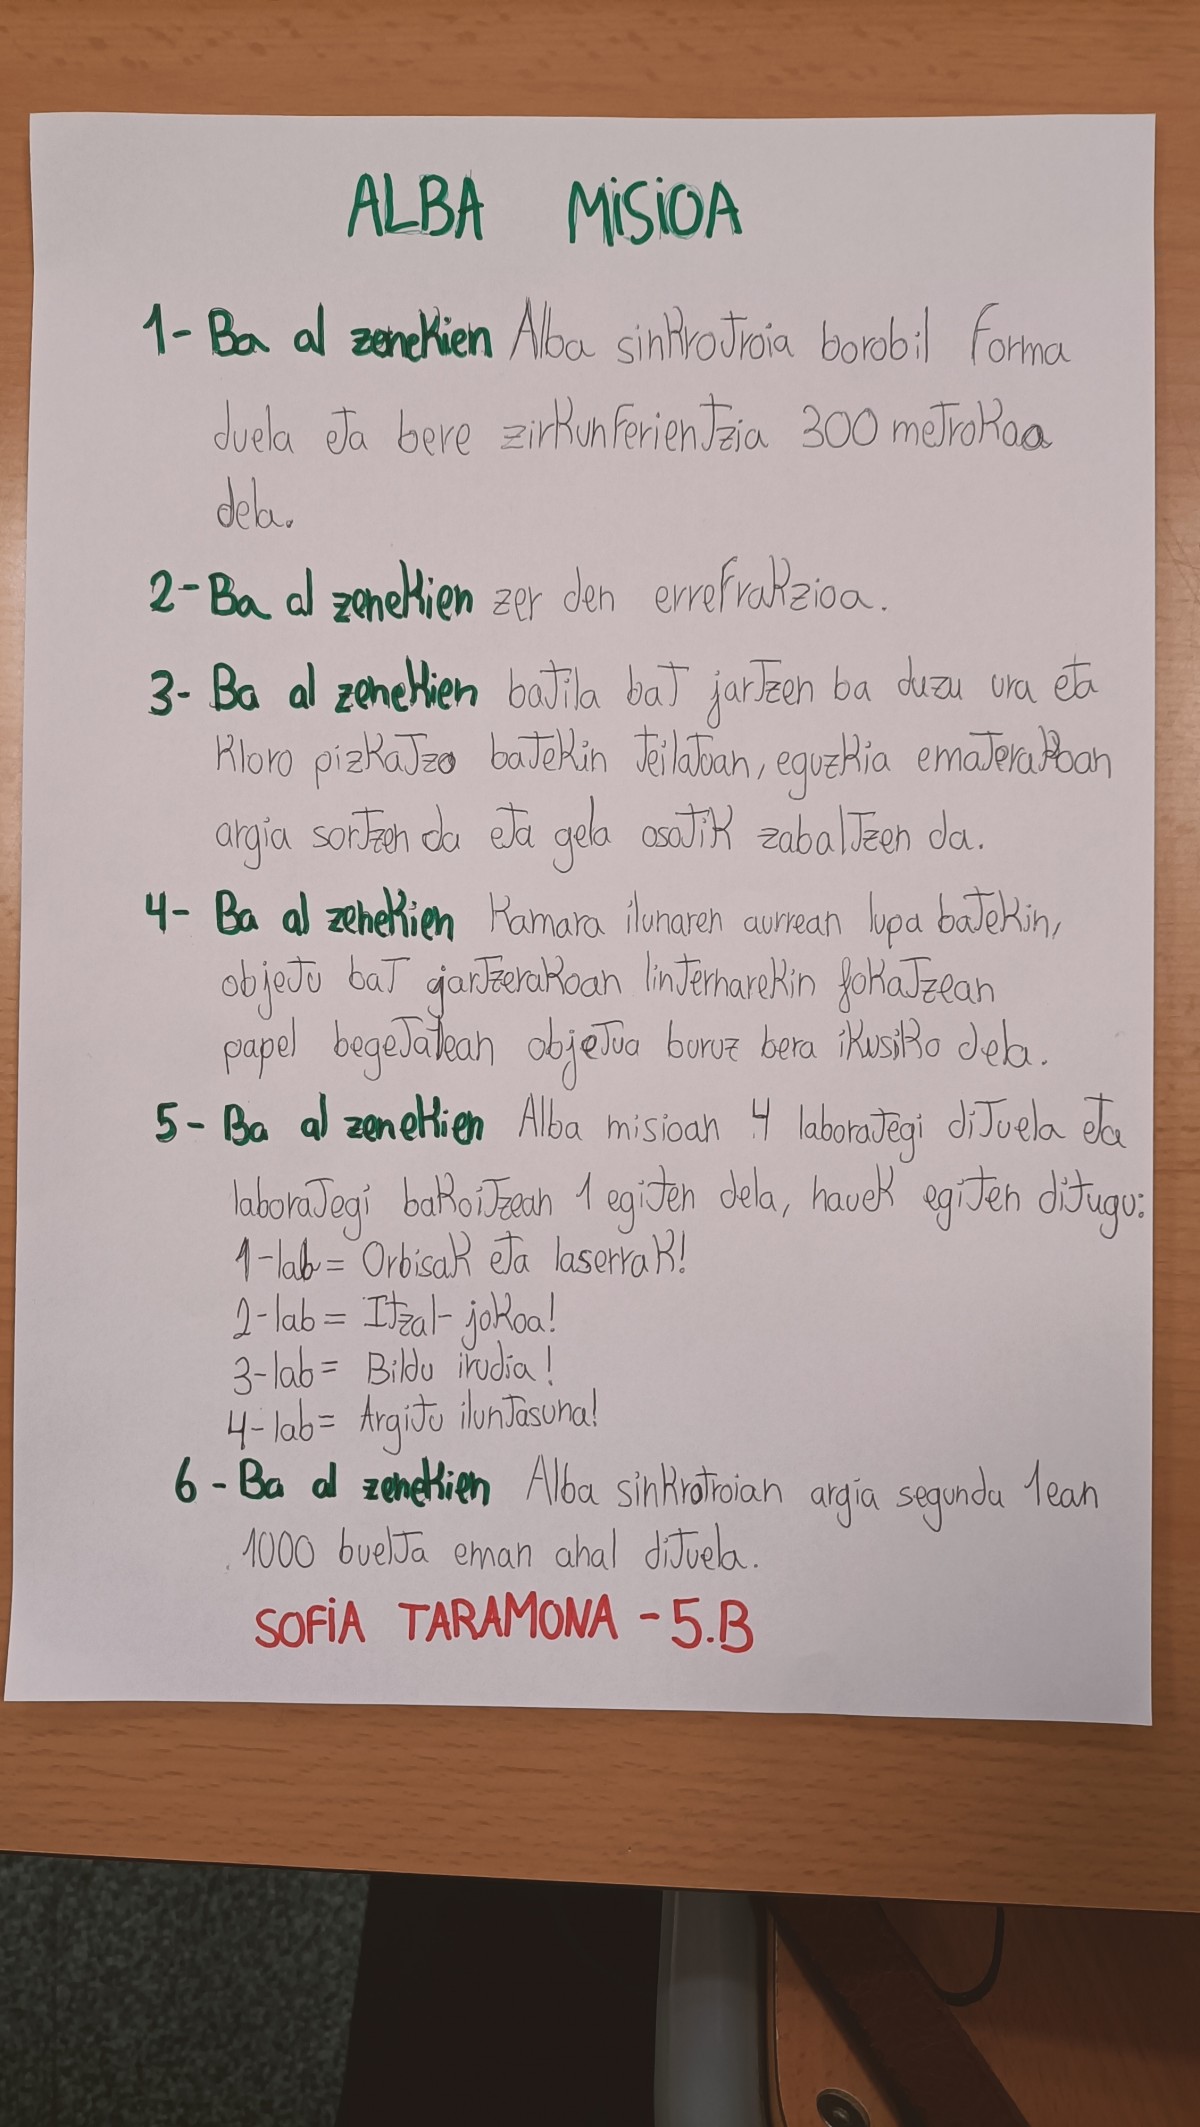 ALBA MISIOA
1- Ba al zenekien Alba sinkrotroia borobil forma
duela eta bere zirkunferientzia 300 metrokoa
dela.
2- Ba al zenekien zer den errefrakzioa.
3- Ba al zenekien batila bat jartzen ba duzu ura eta
kloro pizkatzo batekin teilatoan, eguzkia ematerakoan
argia sortzen da eta gela osotik zabaltzen da.
4- Ba al zenekien Kamara ilunaren aurrean lupa batekin,
objetu bat jartzerakoan linternarekin fokatzean
papel begetalean objetua buruz bera ikusiko dela.
5- Ba al zenekien Alba misioan 4 laborategi dituela eta
laborategi bakoitzean 1 egiten dela, hauek egiten ditugu:
1-lab = Orbisak eta laserrak!
2-lab = Itzal-jokoa!
3-lab = Bildu irudia!
4-lab = Argitu iluntasuna!
6- Ba al zenekien Alba sinkrotroian argia segundu 1ean
1000 buelta eman ahal dituela.
SOFIA TARAMONA - 5.B